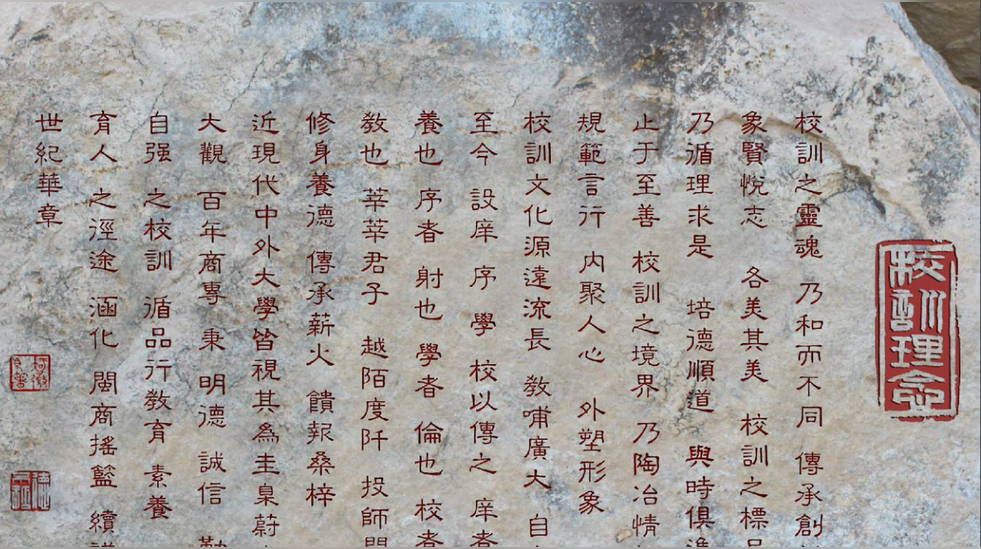 校訓理念
校訓之靈魂 乃和而不同 傳承創
象賢悅志 各美其美 校訓之標
乃循理求是 培德順道 與時俱
止于至善 校訓之境界 乃陶冶情
規範言行 內聚人心 外塑形象
校訓文化源遠流長 敎哺廣大 自
至今 設庠 序 學 校以傳之 庠者
養也 序者 射也 學者 倫也 校者
敎也 莘莘君子 越陌度阡 投師
修身養德 傳承薪火 饋報桑梓
近現代中外大學皆視其為圭臬蔚
大觀 百年商專 秉 明德 誠信
自强 之校訓 循品行敎育 素養
育人之徑途 涵化 閩商搖籃 續
世紀華章